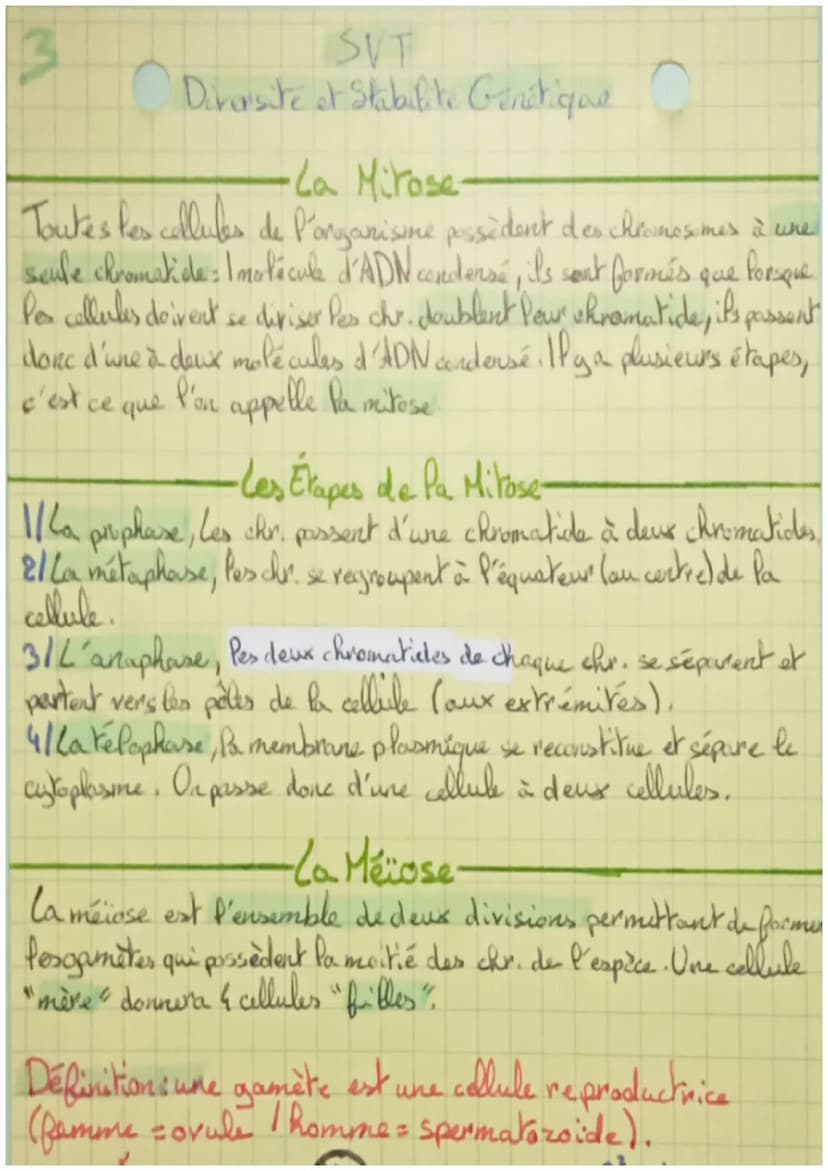 3
SVT
Diversité et Stabilité Génétique
La Mitose
Toutes les cellules de l'organisme possèdent des chromosomes à une
seule chromatide = 1 molécule d'ADN condensé, ils sont formés que lorsque
les cellules doivent se diviser les chr. doublent leur chromatide, ils passent
donc d'une à deux molécules d'ADN condensé. Il y a plusieurs étapes,
c'est ce que l'on appelle la mitose.
Les Étapes de la Mitose
1/ La prophase, Les chr. passent d'une chromatide à deux chromatides.
2/ La métaphase, les chr. se regroupent à l'équateur (au centre) de la
cellule.
3/ L'anaphase, les deux chromatides de chaque chr. se séparent et
partent vers les pôles de la cellule (aux extrémités).
4/ La télophase, la membrane plasmique se reconstitue et sépare le
cytoplasme. On passe donc d'une cellule à deux cellules.
La Méiose
La méiose est l'ensemble de deux divisions permettant de former
les gamètes qui possèdent la moitié des chr. de l'espèce. Une cellule
"mère" donnera 4 cellules "filles".
Définition : une gamète est une cellule reproductrice
(femme = ovule / homme = spermatozoïde).